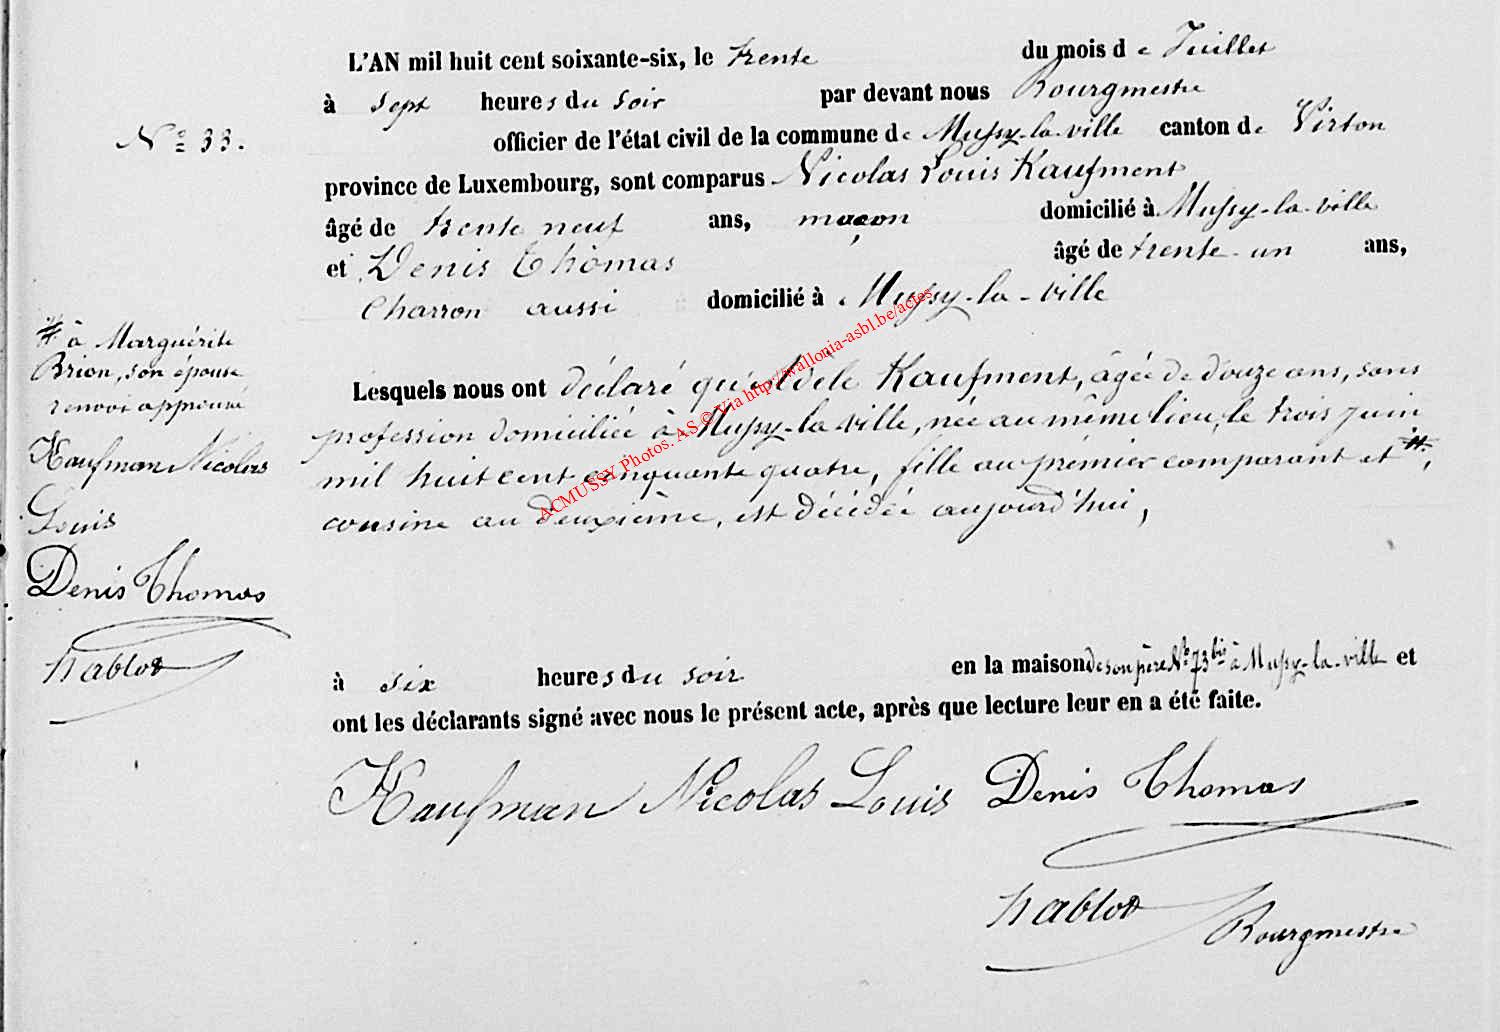 L'AN mil huit cent soixante-six, le trente du mois de Juillet
à sept heures du soir par devant nous Bourgmestre
N° 33.
officier de l'état civil de la commune de Mussy-la-ville canton de Virton
province de Luxembourg, sont comparus Nicolas Louis Kaufment,
âgé de trente neuf ans, maçon domicilié à Mussy-la-ville
et Denis Thomas âgé de trente-un ans,
Charron aussi domicilié à Mussy-la-ville
# à Marguérite
Brion, son épouse
renvoi approuvé
Kaufman Nicolas
Louis
Denis Thomas
habloт
Lesquels nous ont déclaré qu'Adèle Kaufment, âgée de douze ans, sans
profession domiciliée à Mussy-la-ville, née au même lieu, le trois juin
mil huit cent cinquante quatre, fille au premier comparant et #,
cousine au deuxième, est décédée aujourd'hui,
ACMUSSY Photos. AS © Via http://wallonia-asbl.be/actes
à six heures du soir en la maison de son père N° 73bis à Mussy-la-ville et
ont les déclarants signé avec nous le présent acte, après que lecture leur en a été faite.
Kaufman Nicolas Louis Denis Thomas
Bourgmestre